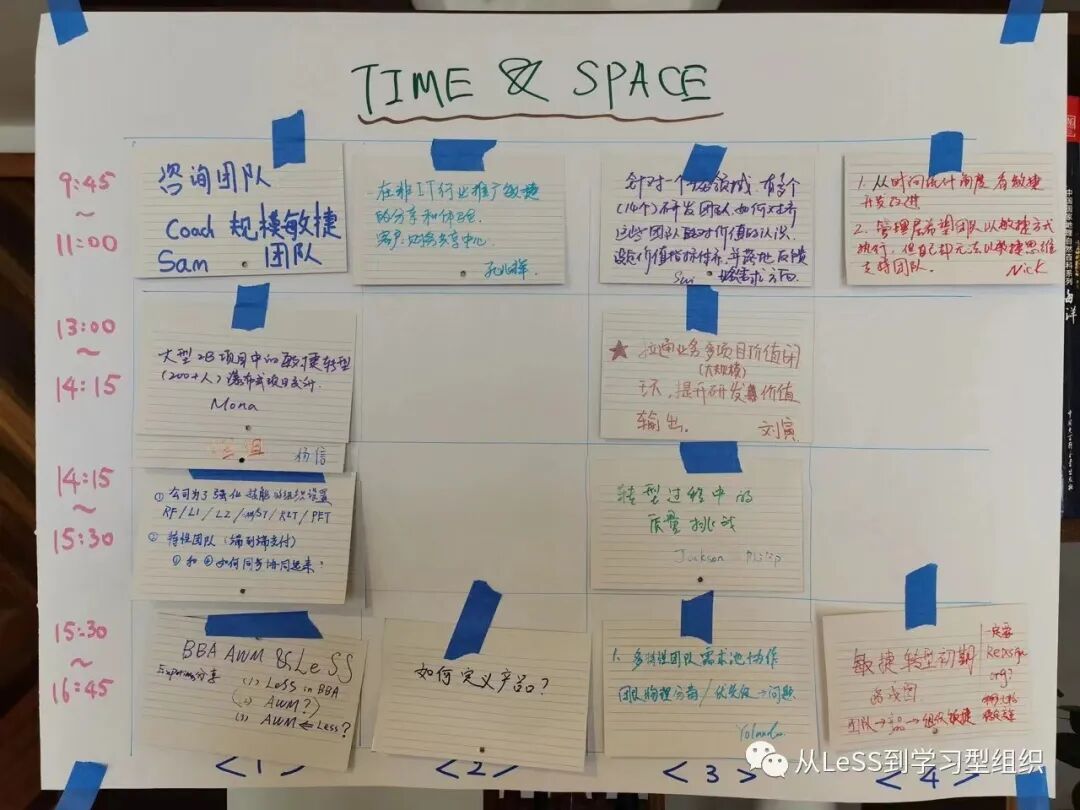 TIME & SPACE
9:45
~
11:00
咨询团队
Coach 规模敏捷
Sam 团队
在非IT行业推广敏捷
的分享和体验.
客户:
针对一个业务领域,有多个
(14个)研发团队,如何对齐
这些团队的对价值的认识,
Sui
1. 从时间统计角度 看敏捷
开发改进
2. 管理层希望团队以敏捷方式
执行,但自己却无法以敏捷思维
支持团队.
Nick
13:00
~
14:15
大型2B项目中的敏捷转型
(200+人)瀑布式项目交付.
Mona
杨信
★ 拉通业务多项目价值闭
(大规模)
环,提升研发价值
输出.
刘寅
14:15
~
15:30
① 公司为了强化技能的组织设置
② 特性团队(端到端交付)
如何同步协同起来?
转型过程中的
质量挑战
Jackson
15:30
~
16:45
BBA AWM & LeSS
分享
(1) LeSS in BBA
(2) AWM?
(3) AWM ⇐ Less?
如何定义产品?
1. 多特性团队需求池协作
团队 / 优先级→问题
Yolanda
敏捷转型初期
团队→产品→组织敏捷
一定要
Redesign
org?
<1>
<2>
<3>
<4>
从LeSS到学习型组织